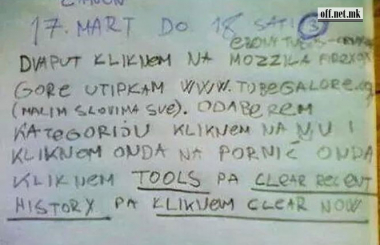 off.net.mk
17. MART DO 18 SATI 3
DVAPUT KLIKNEM NA MOZZILA FIREFOX
GORE UTIPKAM WWW.TUBEGALORE.
(MALIM SLOVIMA SVE). ODABEREM
KATEGORIJU KLIKNEM NA NJU I
KLIKNEM ONDA NA PORNIĆ ONDA
KLIKNEM TOOLS PA CLEAR RECENT
HISTORY PA KLIKNEM CLEAR NOW